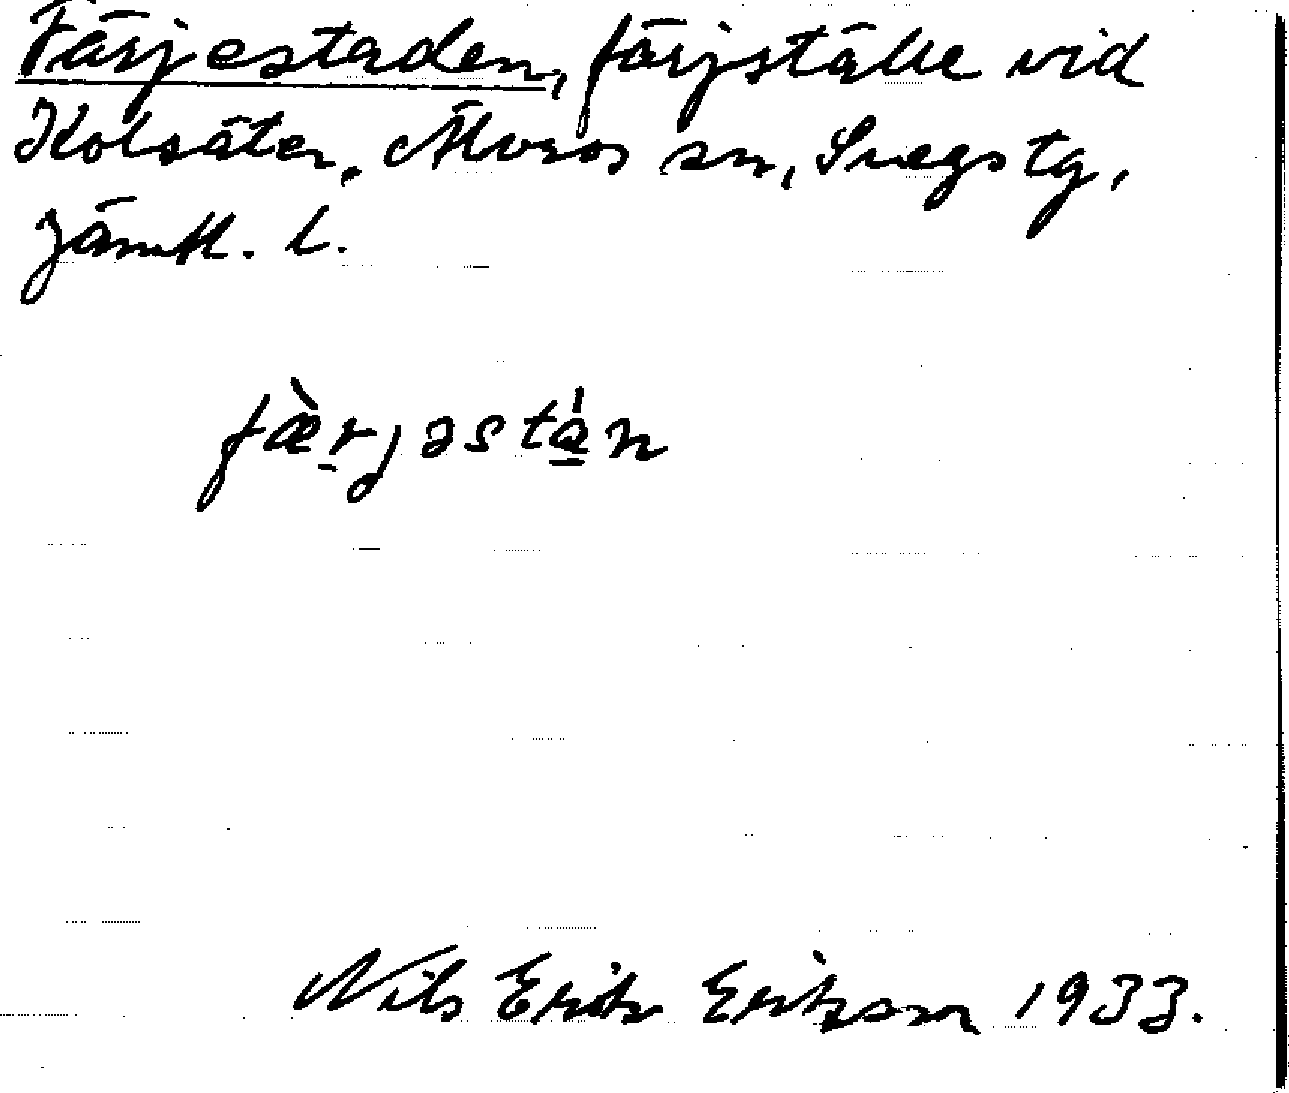 Färjestaden, färjställe vid
Kolsäter, Älvros sn, Svegs tg,
Jämtl. l.
fæ̀rjəstá̱n
Nils Erik Erikson 1933.